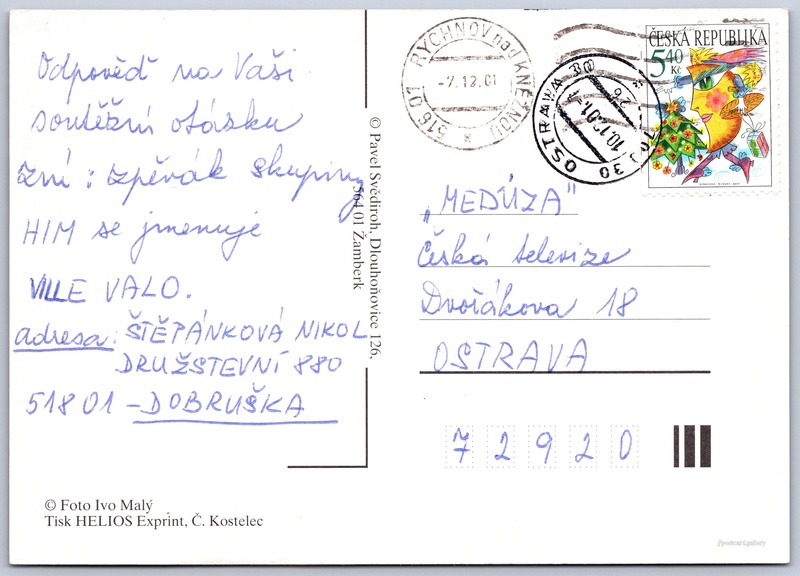 Odpověď na Vaši
soutěžní otásku
zní: zpěvák skupiny
HIM se jmenuje
VILLE VALO.
adresa: ŠTĚPÁNKOVÁ NIKOL
DRUŽSTEVNÍ 880
518 01 - DOBRUŠKA
© Foto Ivo Malý
Tisk HELIOS Exprint, Č. Kostelec
© Pavel Svědiroh, Dlouhoňovice 126,
564 01 Žamberk
516 01 RYCHNOV nad KNĚŽNOU
-7.12.01
OSTRAVA 02
10.12.01
OJ 30
ČESKÁ REPUBLIKA
5,40
Kč
„MEDÚZA"
Česká televize
Dvořákova 18
OSTRAVA
7 2 9 2 0